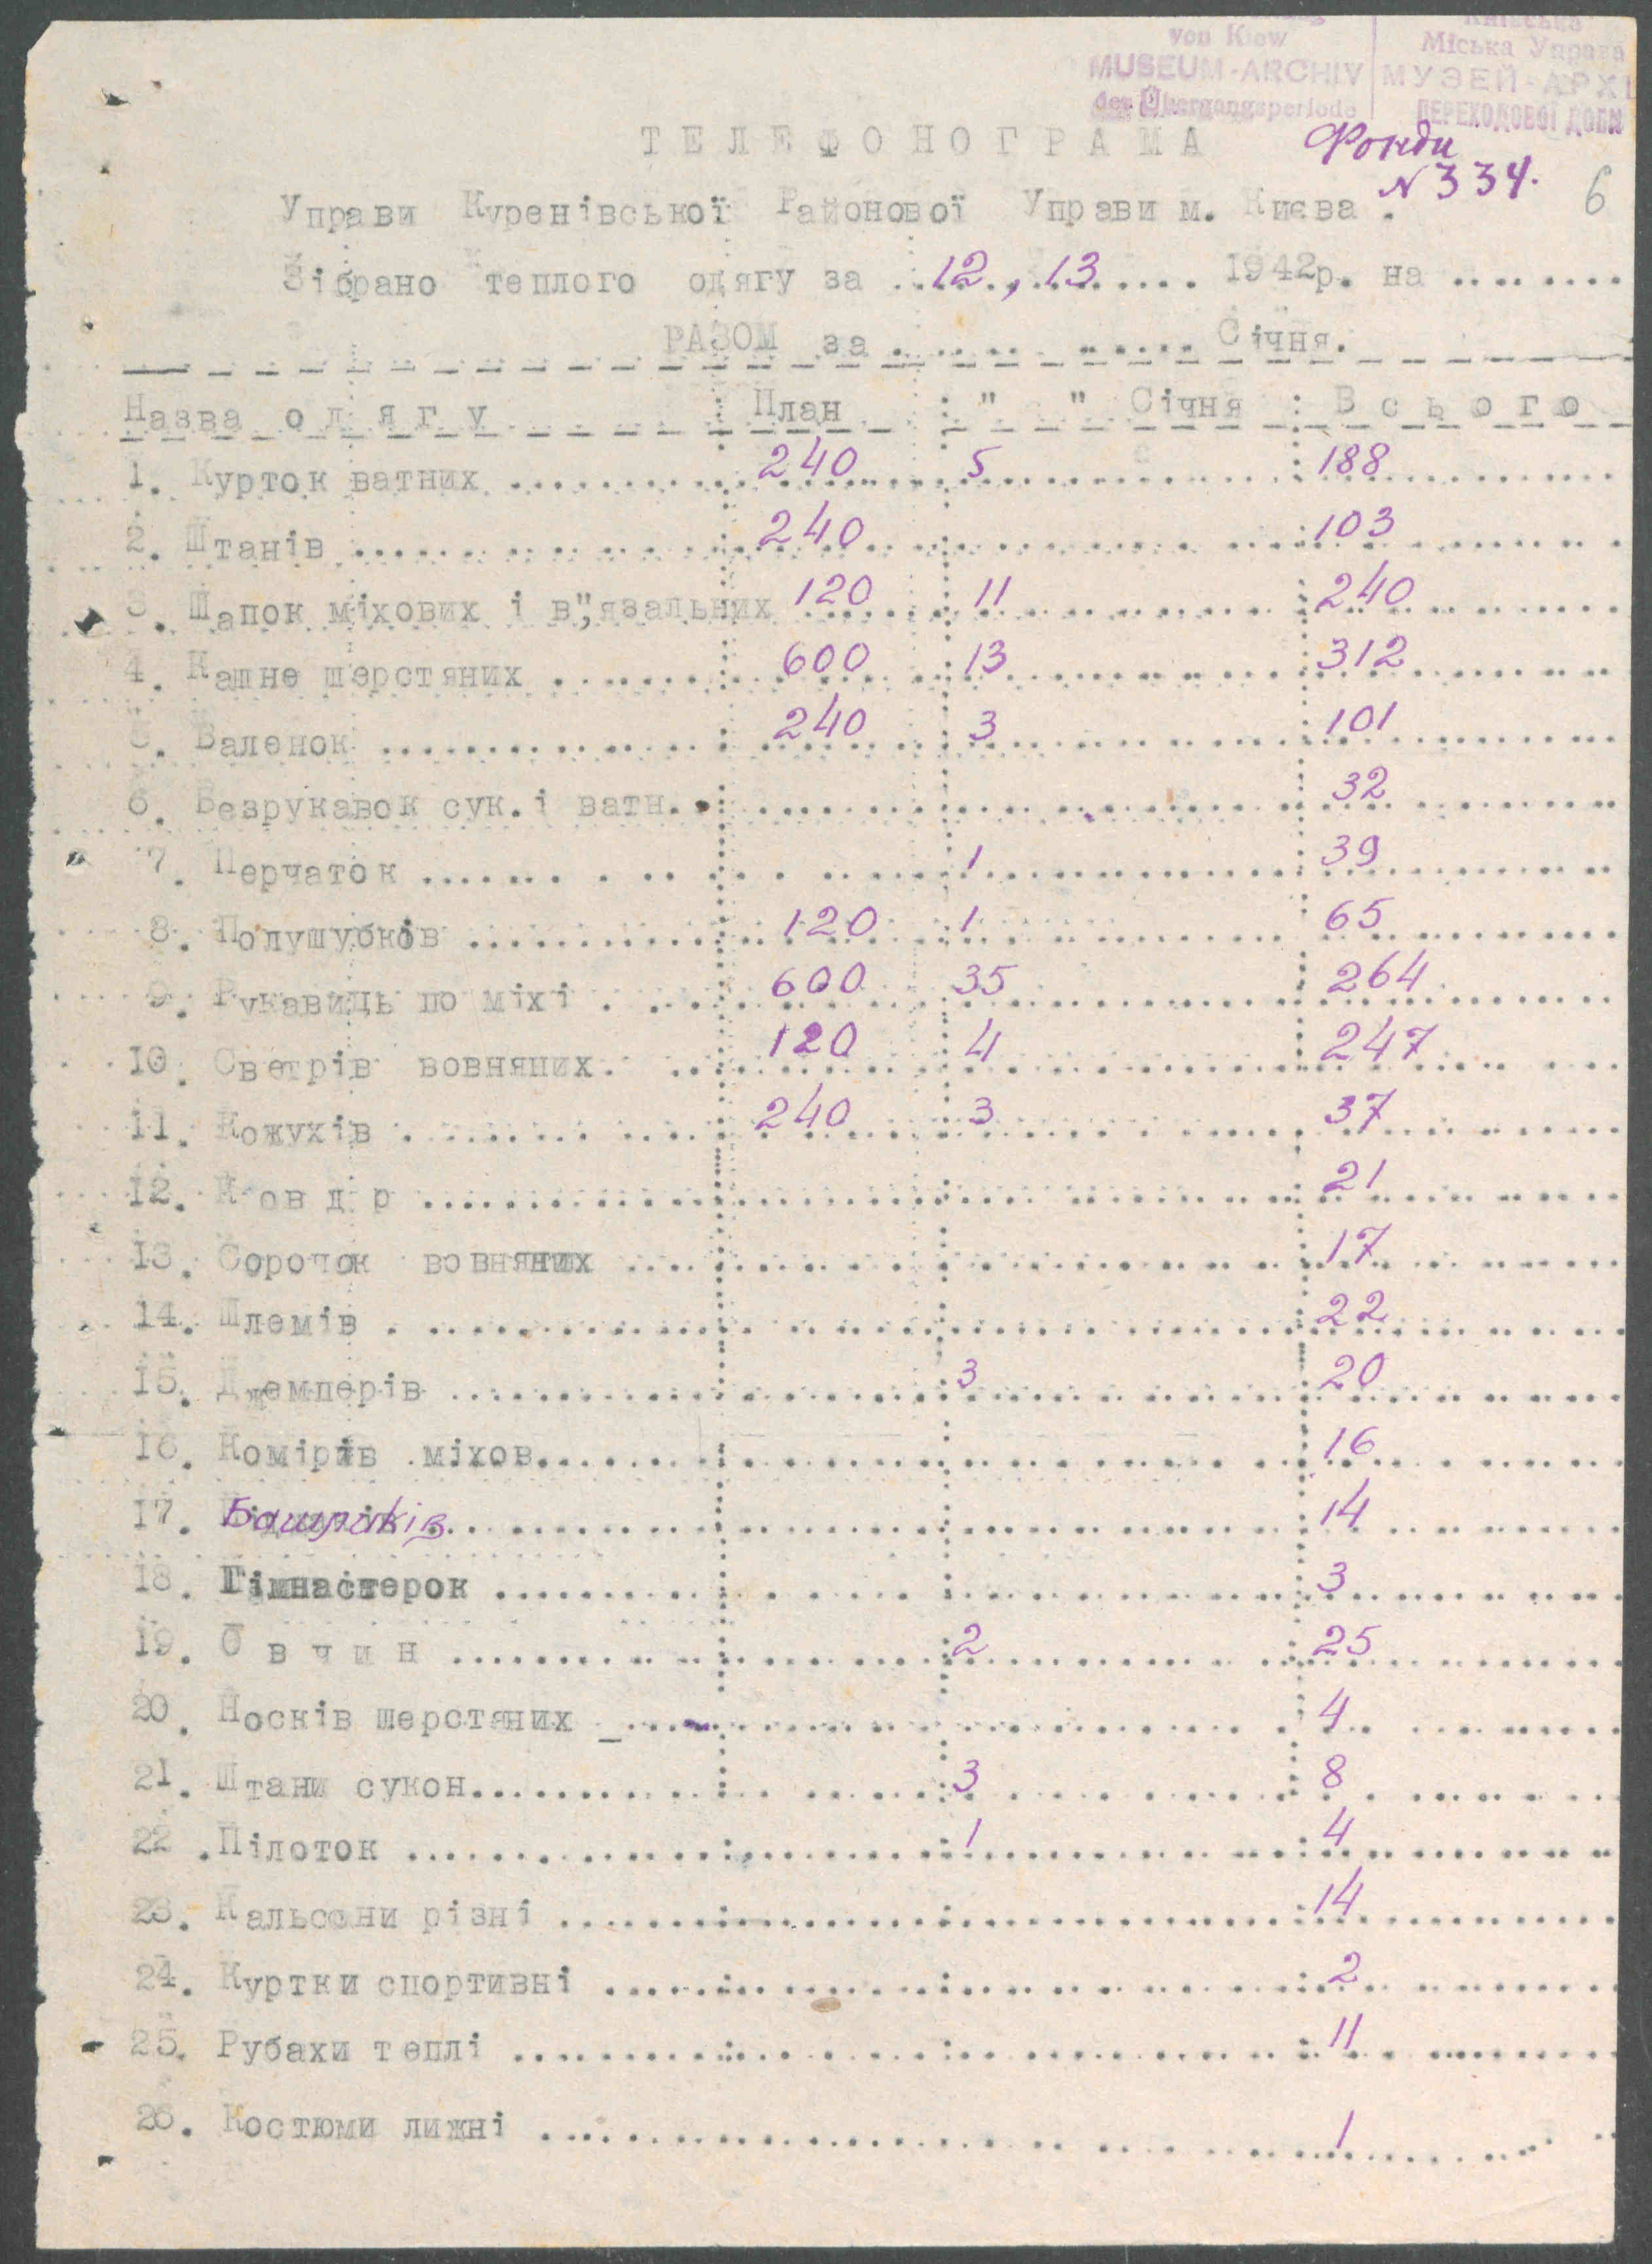 von Kiew
Міська Управа
MUSEUM-ARCHIV
МУЗЕЙ-АРХІ
der Übergangsperiode
ПЕРЕХОДОВОЇ ДОБИ
ТЕЛЕФОНОГРАМА
Фонди
N 334.
6
Управи Куренівської Районової Управи м. Києва .
Зібрано теплого одягу за ..12.,.13....... 1942р. на ........
РАЗОМ за ........... Січня.
Назва одягу : План : " " Січня : Всього
1. Курток ватних ........ 240 5 188
2. Штанів ........ 240 103
3. Шапок міхових і в",язальних 120 11 240
4. Кашне шерстяних ........ 600 13 312
5. Валенок ........ 240 3 101
6. Безрукавок сук. і ватн. 32
7. Перчаток ........ 1 39
8. Полушубків ........ 120 1 65
9. Рукавиць по міхі ........ 600 35 264
10. Светрів вовняних. ........ 120 4 247
11. Кожухів ........ 240 3 37
12. Ковдр ........ 21
13. Сорочок вовняних ........ 17
14. Шлемів ........ 22
15. Джемперів ........ 3 20
16. Комірів міхов. ........ 16
17. Башликів ........ 14
18. Гімнастерок ........ 3
19. Овчин ........ 2 25
20. Носків шерстяних _ ........ 4
21. Штани сукон. ........ 3 8
22. Пілоток ........ 1 4
23. Кальсони різні ........ 14
24. Куртки спортивні ........ 2
25. Рубахи теплі ........ 11
26. Костюми лижні ........ 1